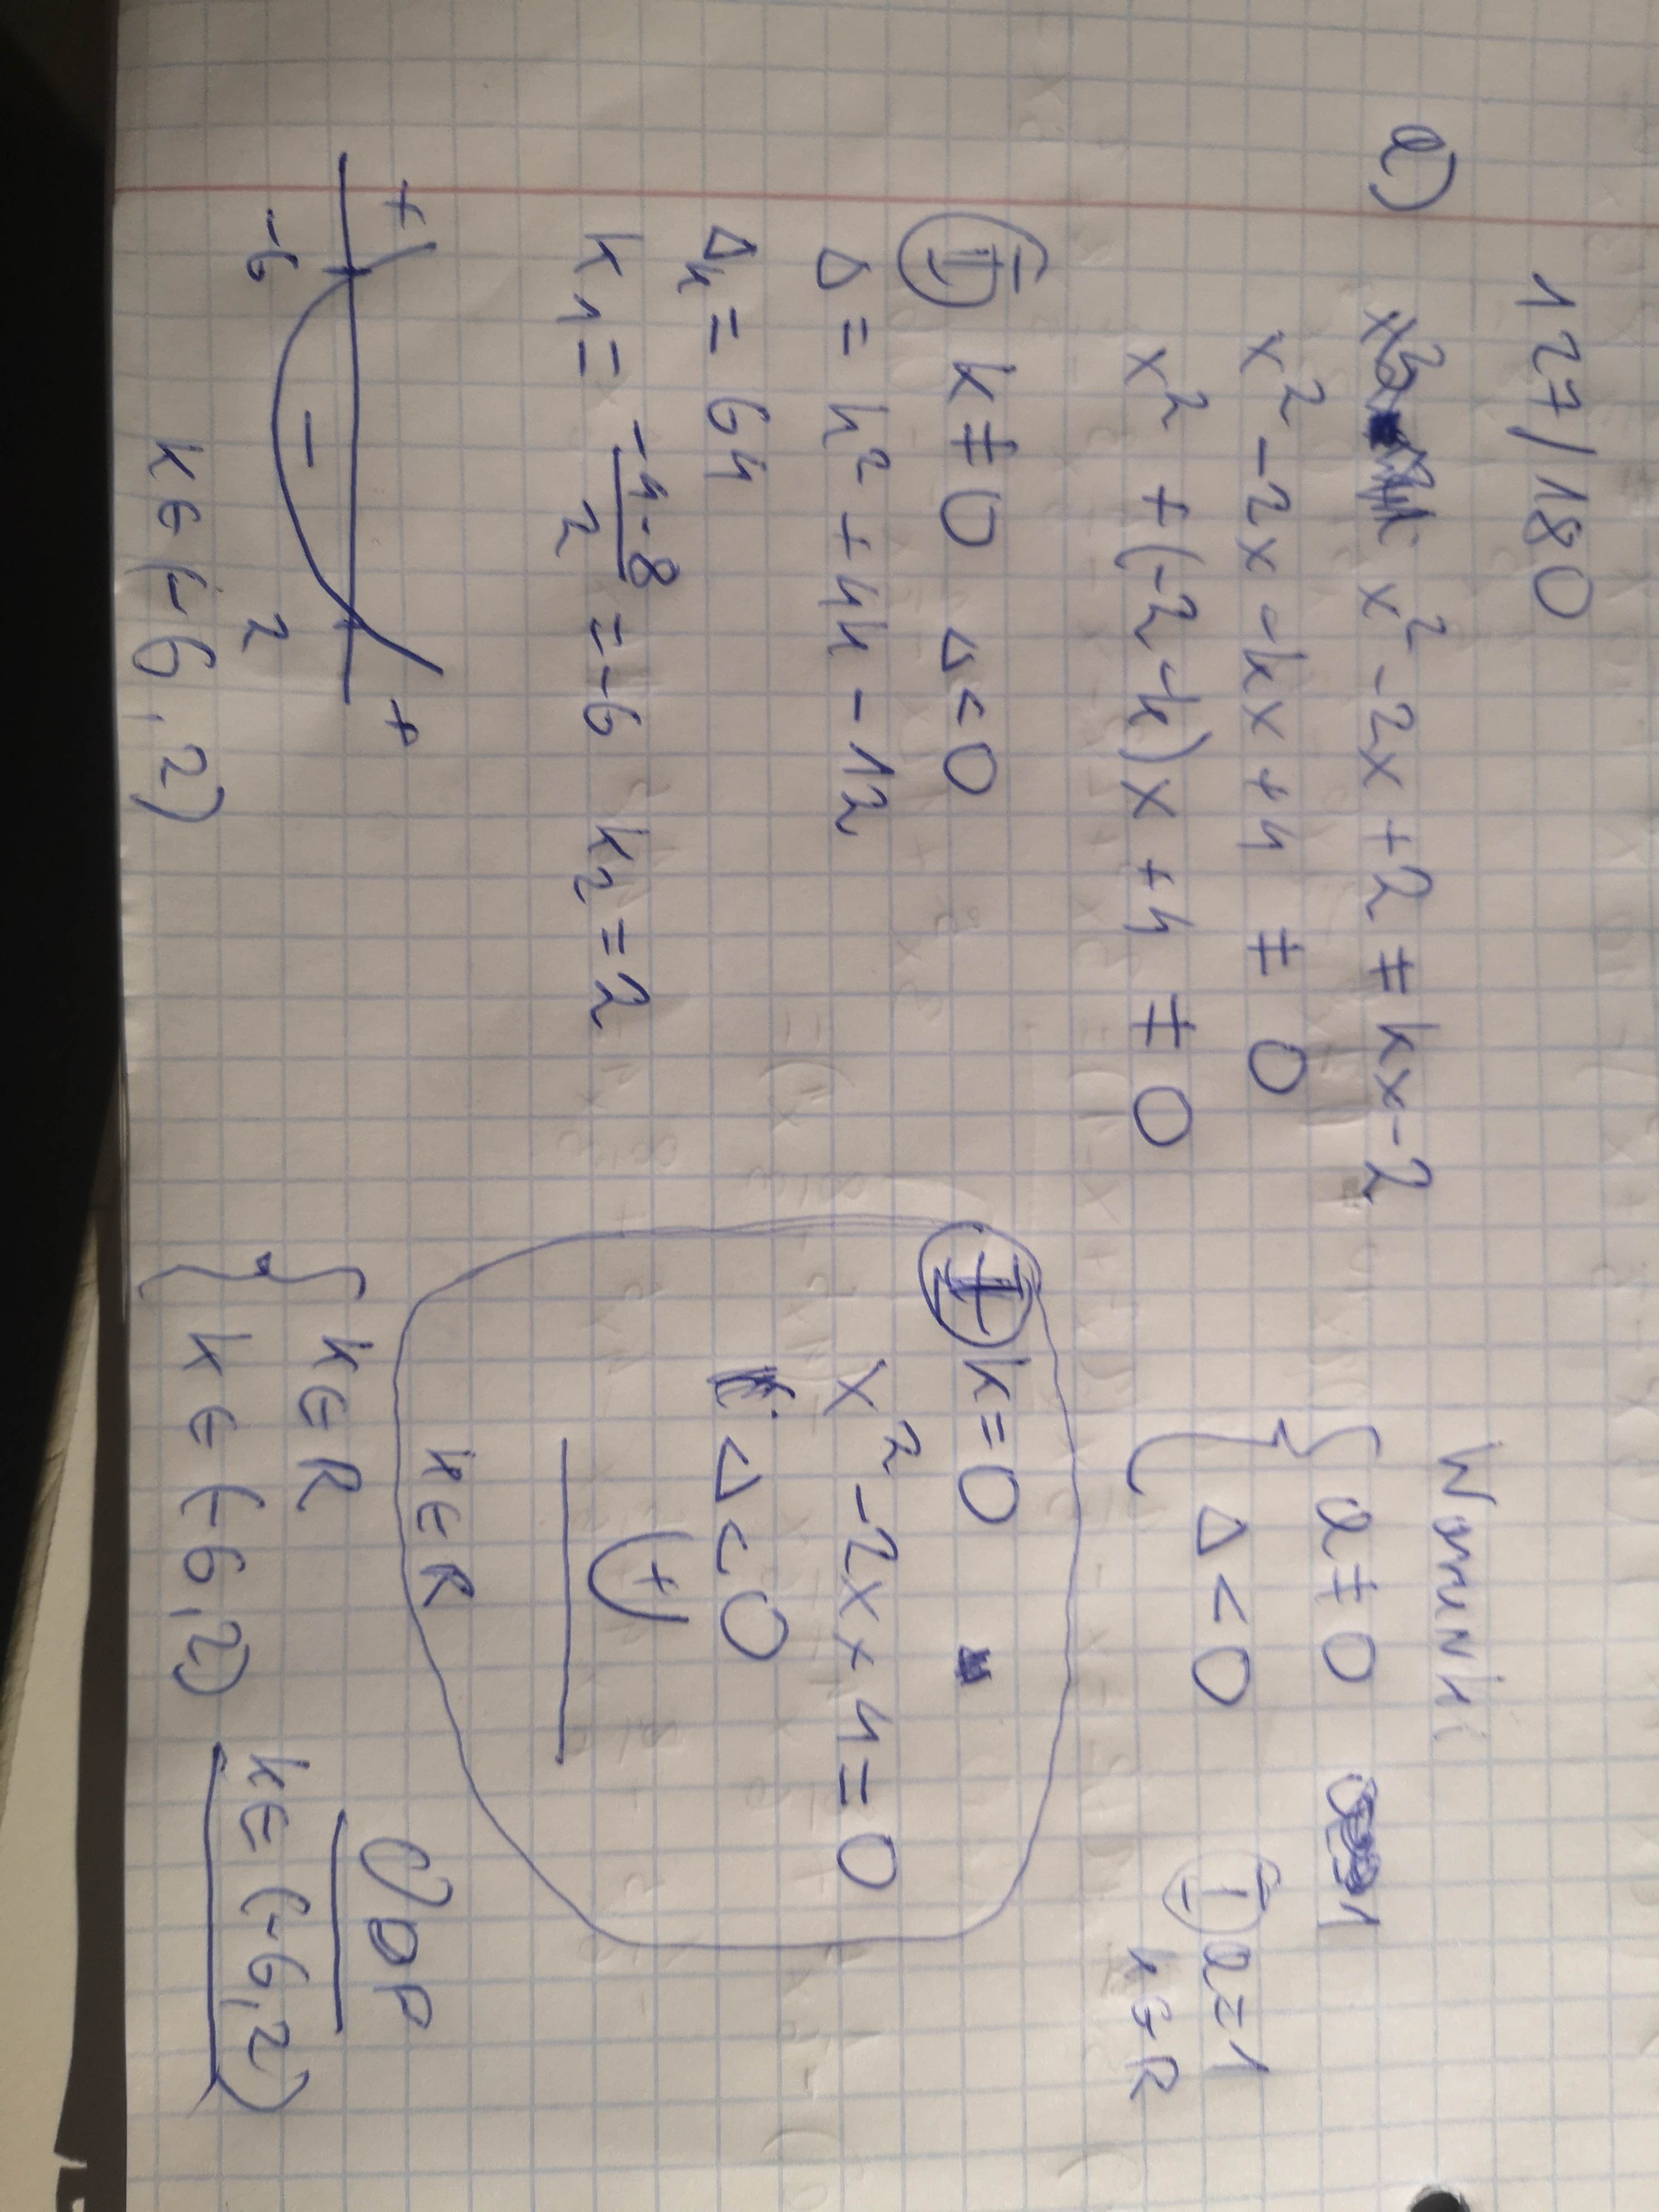 127/180
a) x² - 2x + 2 ≠ kx - 2
x² - 2x - kx + 4 ≠ 0
x² + (-2 - k)x + 4 ≠ 0
Warunki
a ≠ 0
Δ < 0
I a = 1
k ∈ R
II k ≠ 0 Δ < 0
Δ = k² + 4k - 12
Δk = 64
k₁ = (-4 - 8)/2 = -6 k₂ = 2
+ - +
-6 2
k ∈ (-6, 2)
k = 0
x² - 2x + 4 = 0
Δ < 0
+
k ∈ R
k ∈ R
k ∈ (-6, 2)
Odp
k ∈ (-6, 2)